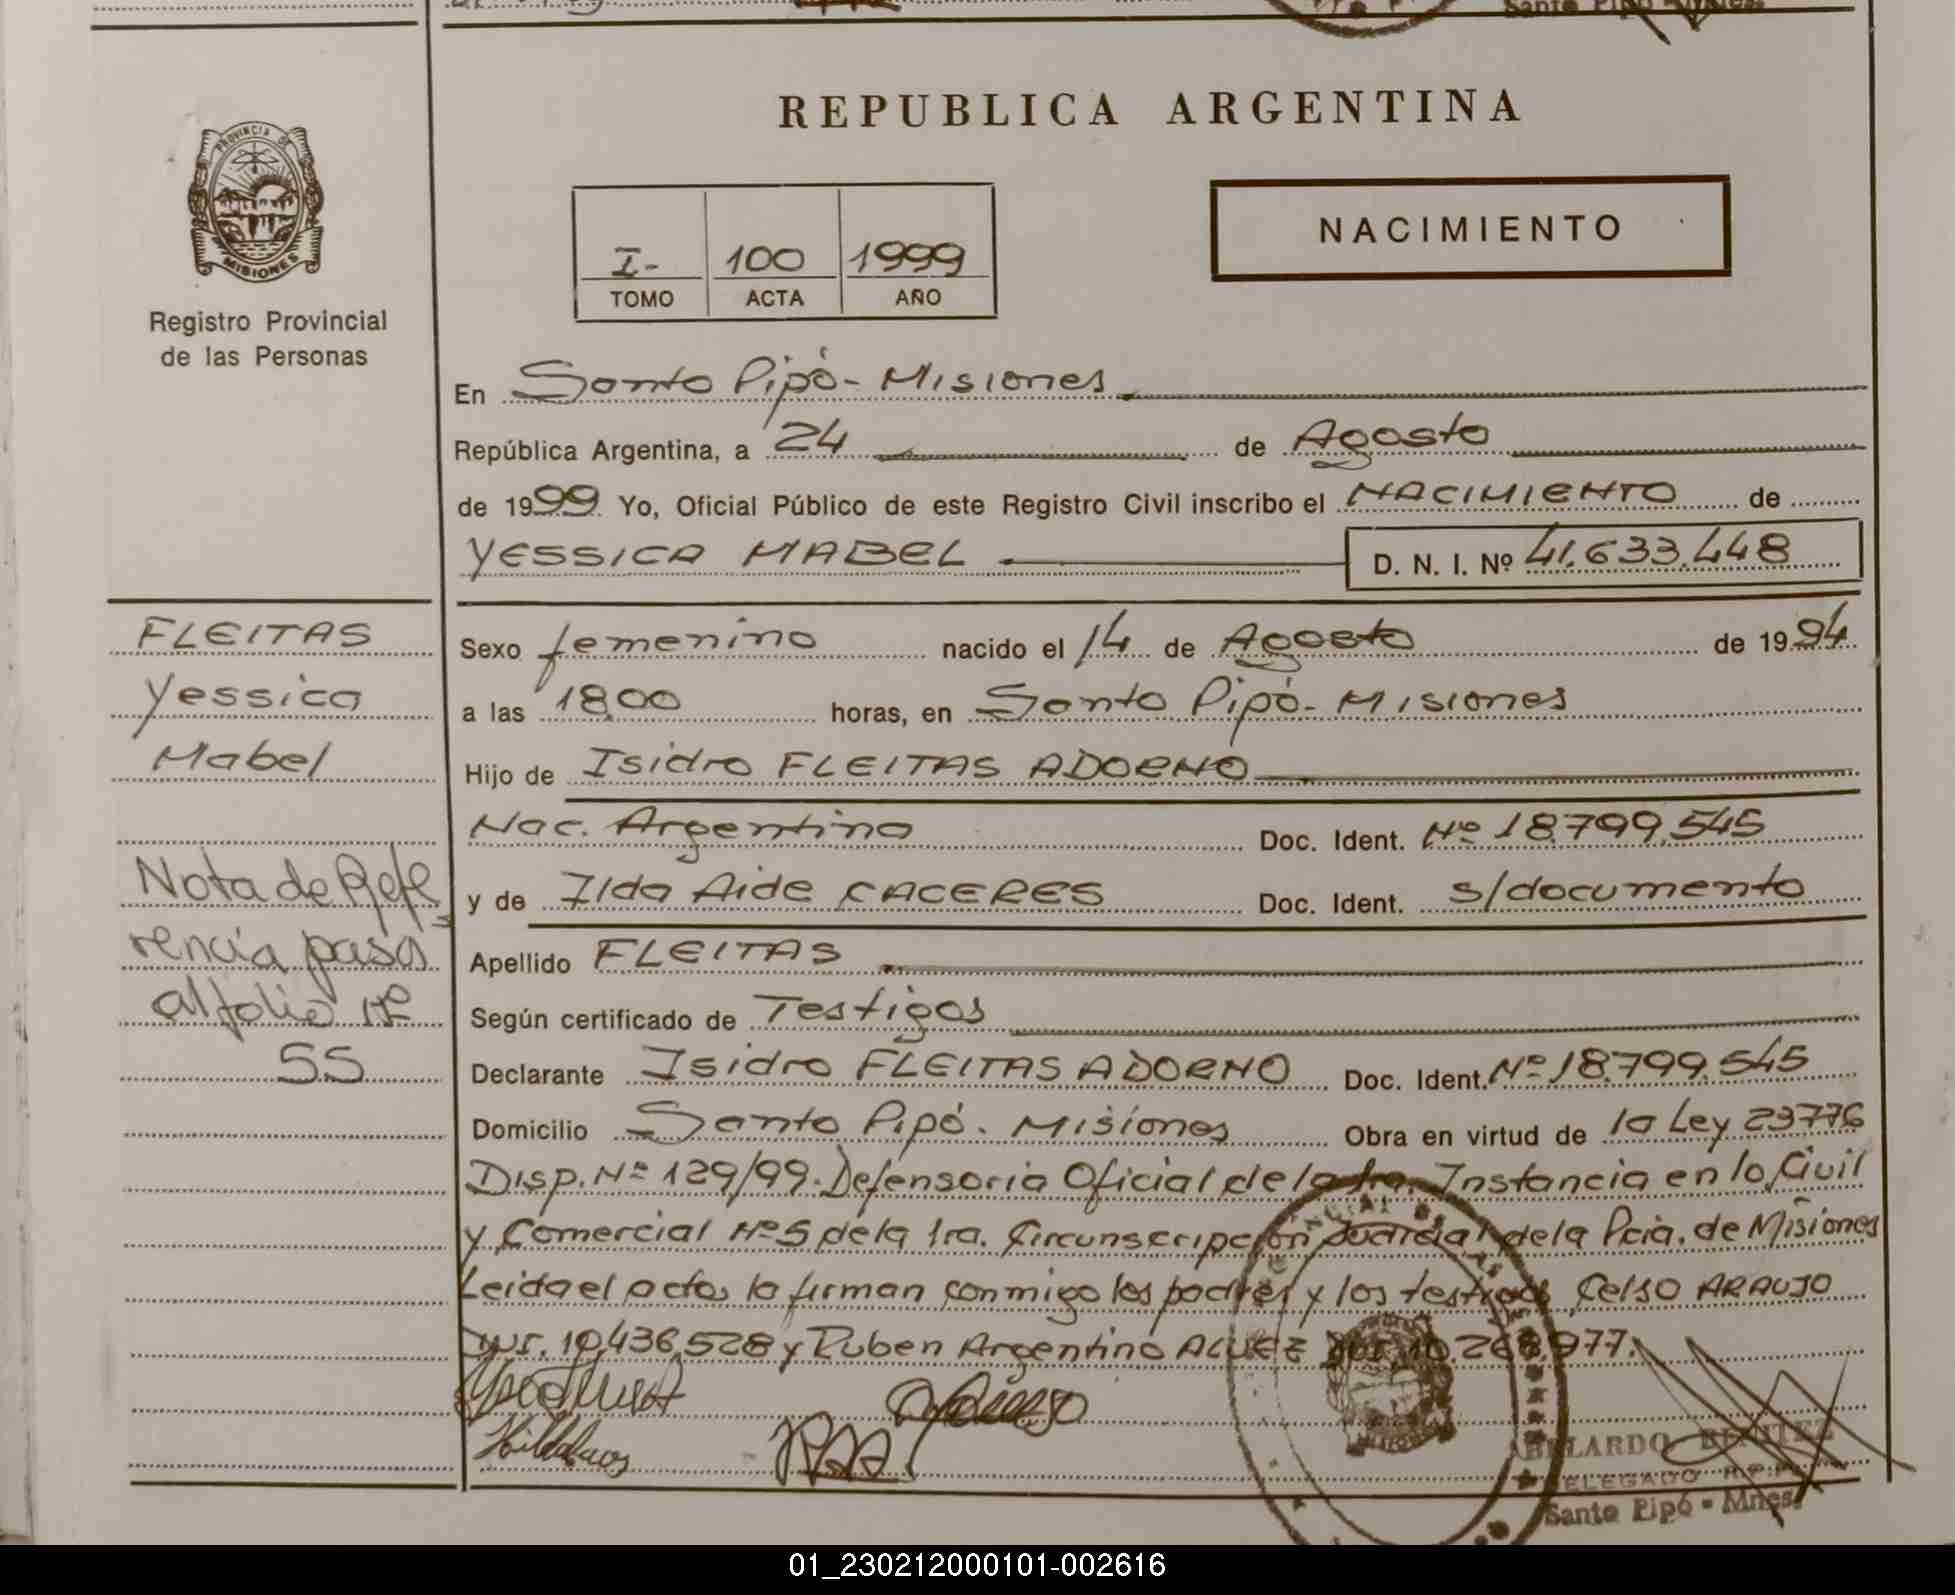 REPUBLICA ARGENTINA
PROVINCIA DE
MISIONES
Registro Provincial
de las Personas
NACIMIENTO
I- 100 1999
TOMO ACTA AÑO
En Santo Pipó - Misiones
República Argentina, a 24 de Agosto
de 1999 Yo, Oficial Público de este Registro Civil inscribo el NACIMIENTO de
YESSICA MABEL D. N. I. Nº 41.633.448
FLEITAS
Yessica
Mabel
Nota de Refe
rencia pasa
al folio Nº
55
Sexo femenino nacido el 14 de Agosto de 1994
a las 18,00 horas, en Santo Pipó - Misiones
Hijo de Isidro FLEITAS ADORNO
Nac. Argentina Doc. Ident. Nº 18.799.545
y de Ilda Aide CACERES Doc. Ident. s/documento
Apellido FLEITAS
Según certificado de Testigos
Declarante Isidro FLEITAS ADORNO Doc. Ident. Nº 18.799.545
Domicilio Santo Pipó. Misiones Obra en virtud de la Ley 23776
DISP. Nº 129/99. Defensoria Oficial de la 1ra. Instancia en lo Civil
y Comercial Nº 5 de la 1ra. Circunscripción Judicial de la Pcia. de Misiones
Leida el acta, la firman conmigo los padres y los testigos Celso ARAUJO
DNI. 10.436.528 y Ruben Argentino ALVEZ DNI. 10.268.977.
ABELARDO BENITEZ
DELEGADO R.P.P.
Santo Pipó - Mnes.
01_230212000101-002616